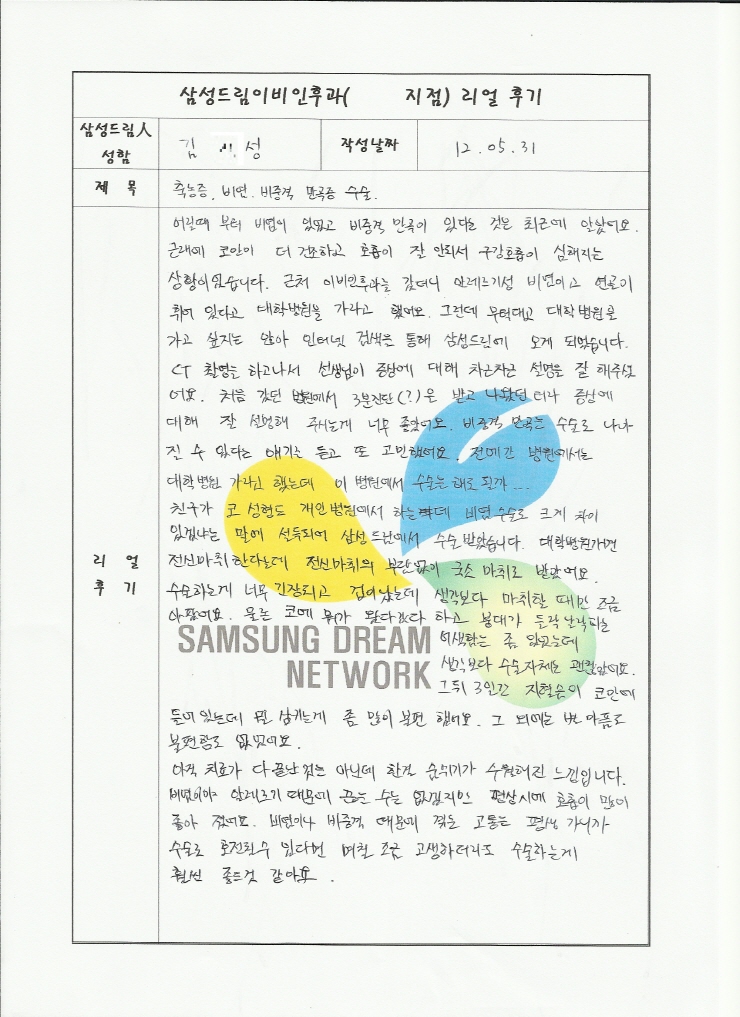 삼성드림이비인후과( 지점) 리얼 후기
삼성드림人
성함
김 성
작성날짜
12.05.31
제 목
축농증, 비염, 비중격 만곡증 수술.
리 얼
후 기
어릴때 부터 비염이 있었고 비중격 만곡이 있다는 것은 최근에 알았어요.
근래에 코안이 더 건조하고 호흡이 잘 안되서 구강호흡이 심해지는
상황이었습니다. 근처 이비인후과를 갔더니 알레르기성 비염이고 연골이
휘어 있다고 대학병원을 가라고 했어요. 그런데 무턱대고 대학병원을
가고 싶지는 않아 인터넷 검색을 통해 삼성드림에 오게 되었습니다.
CT 촬영을 하고나서 선생님이 증상에 대해 차근차근 설명을 잘 해주셨
어요. 처음 갔던 병원에서 3분진단(?)을 받고 나왔던 터라 증상에
대해 잘 설명해 주시는게 너무 좋았어요. 비중격 만곡는 수술로 나아
질 수 있다는 얘기는 듣고 또 고민했어요. 전에간 병원에서는
대학병원 가라고 했는데 이 병원에서 수술는 해도 될까....
친구가 코 성형도 개인병원에서 하는데 비염수술도 크게 차이
있겠냐는 말에 설득되어 삼성드림에서 수술 받았습니다. 대학병원가면
전신마취한다는데 전신마취의 부담없이 국소 마취로 받았어요.
수술하는게 너무 긴장되고 겁이났는데 생각보다 마취할 때만 조금
아팠어요. 물론 코에 뭐가 왔다갔다 하고 붕대가 들락날락하는
어색함는 좀 있었는데
SAMSUNG DREAM
NETWORK
생각보다 수술자체는 괜찮았어요.
그뒤 3일간 지혈솜이 코안에
들어있는데 삼키는게 좀 많이 불편 했어요. 그 뒤에는 별 아픔도
불편함도 없었어요.
아직 치료가 다 끝난것는 아닌데 한결 숨쉬기가 수월해진 느낌입니다.
비염이야 알레르기 때문에 끊는 수는 없겠지만 평상시에 호흡이 많이
좋아 졌어요. 비염이나 비중격 때문에 겪는 고통는 평생 가니까
수술로 호전될수 있다면 며칠 조금 고생하더라도 수술하는게
훨씬 좋은것 같아요.